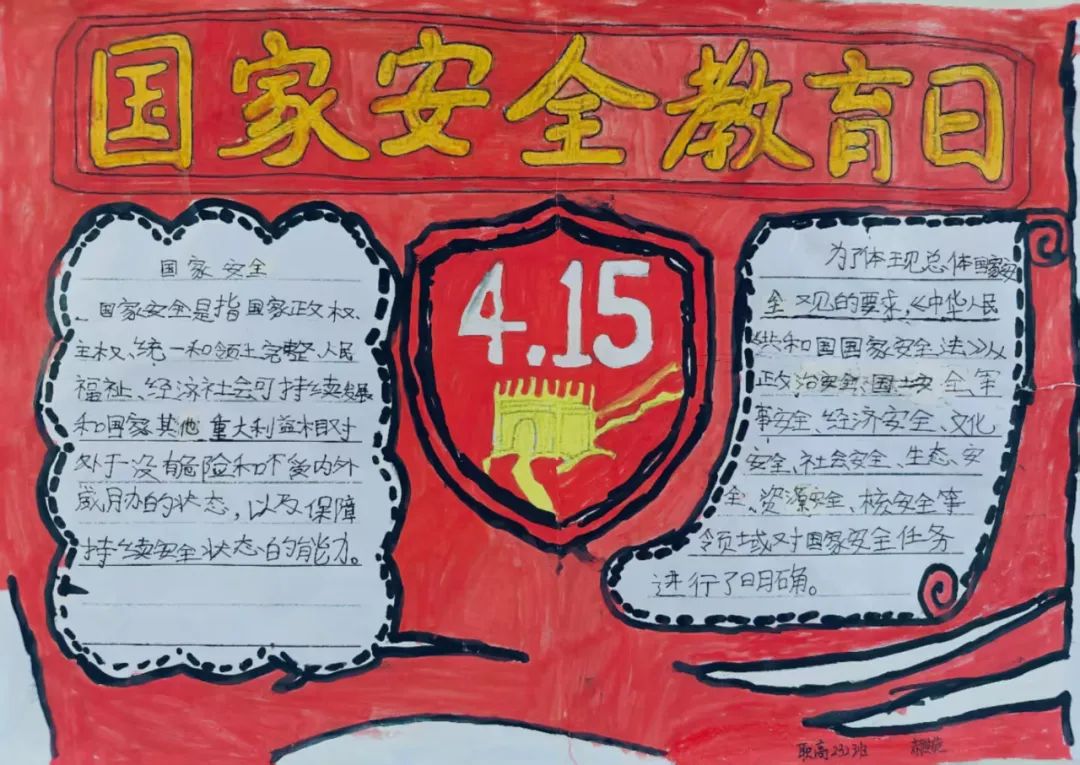 国家安全教育日
4.15
国家安全
国家安全是指国家政权、
主权、统一和领土完整、人民
福祉、经济社会可持续发展
和国家其他重大利益相对
处于没有危险和不受内外
威胁的状态，以及保障
持续安全状态的能力。
为了体现总体国家安
全观的要求，《中华人民
共和国国家安全法》从
政治安全、国土安全、军
事安全、经济安全、文化
安全、社会安全、生态、安
全、资源安全、核安全等
领域对国家安全任务
进行了明确。
职高232班